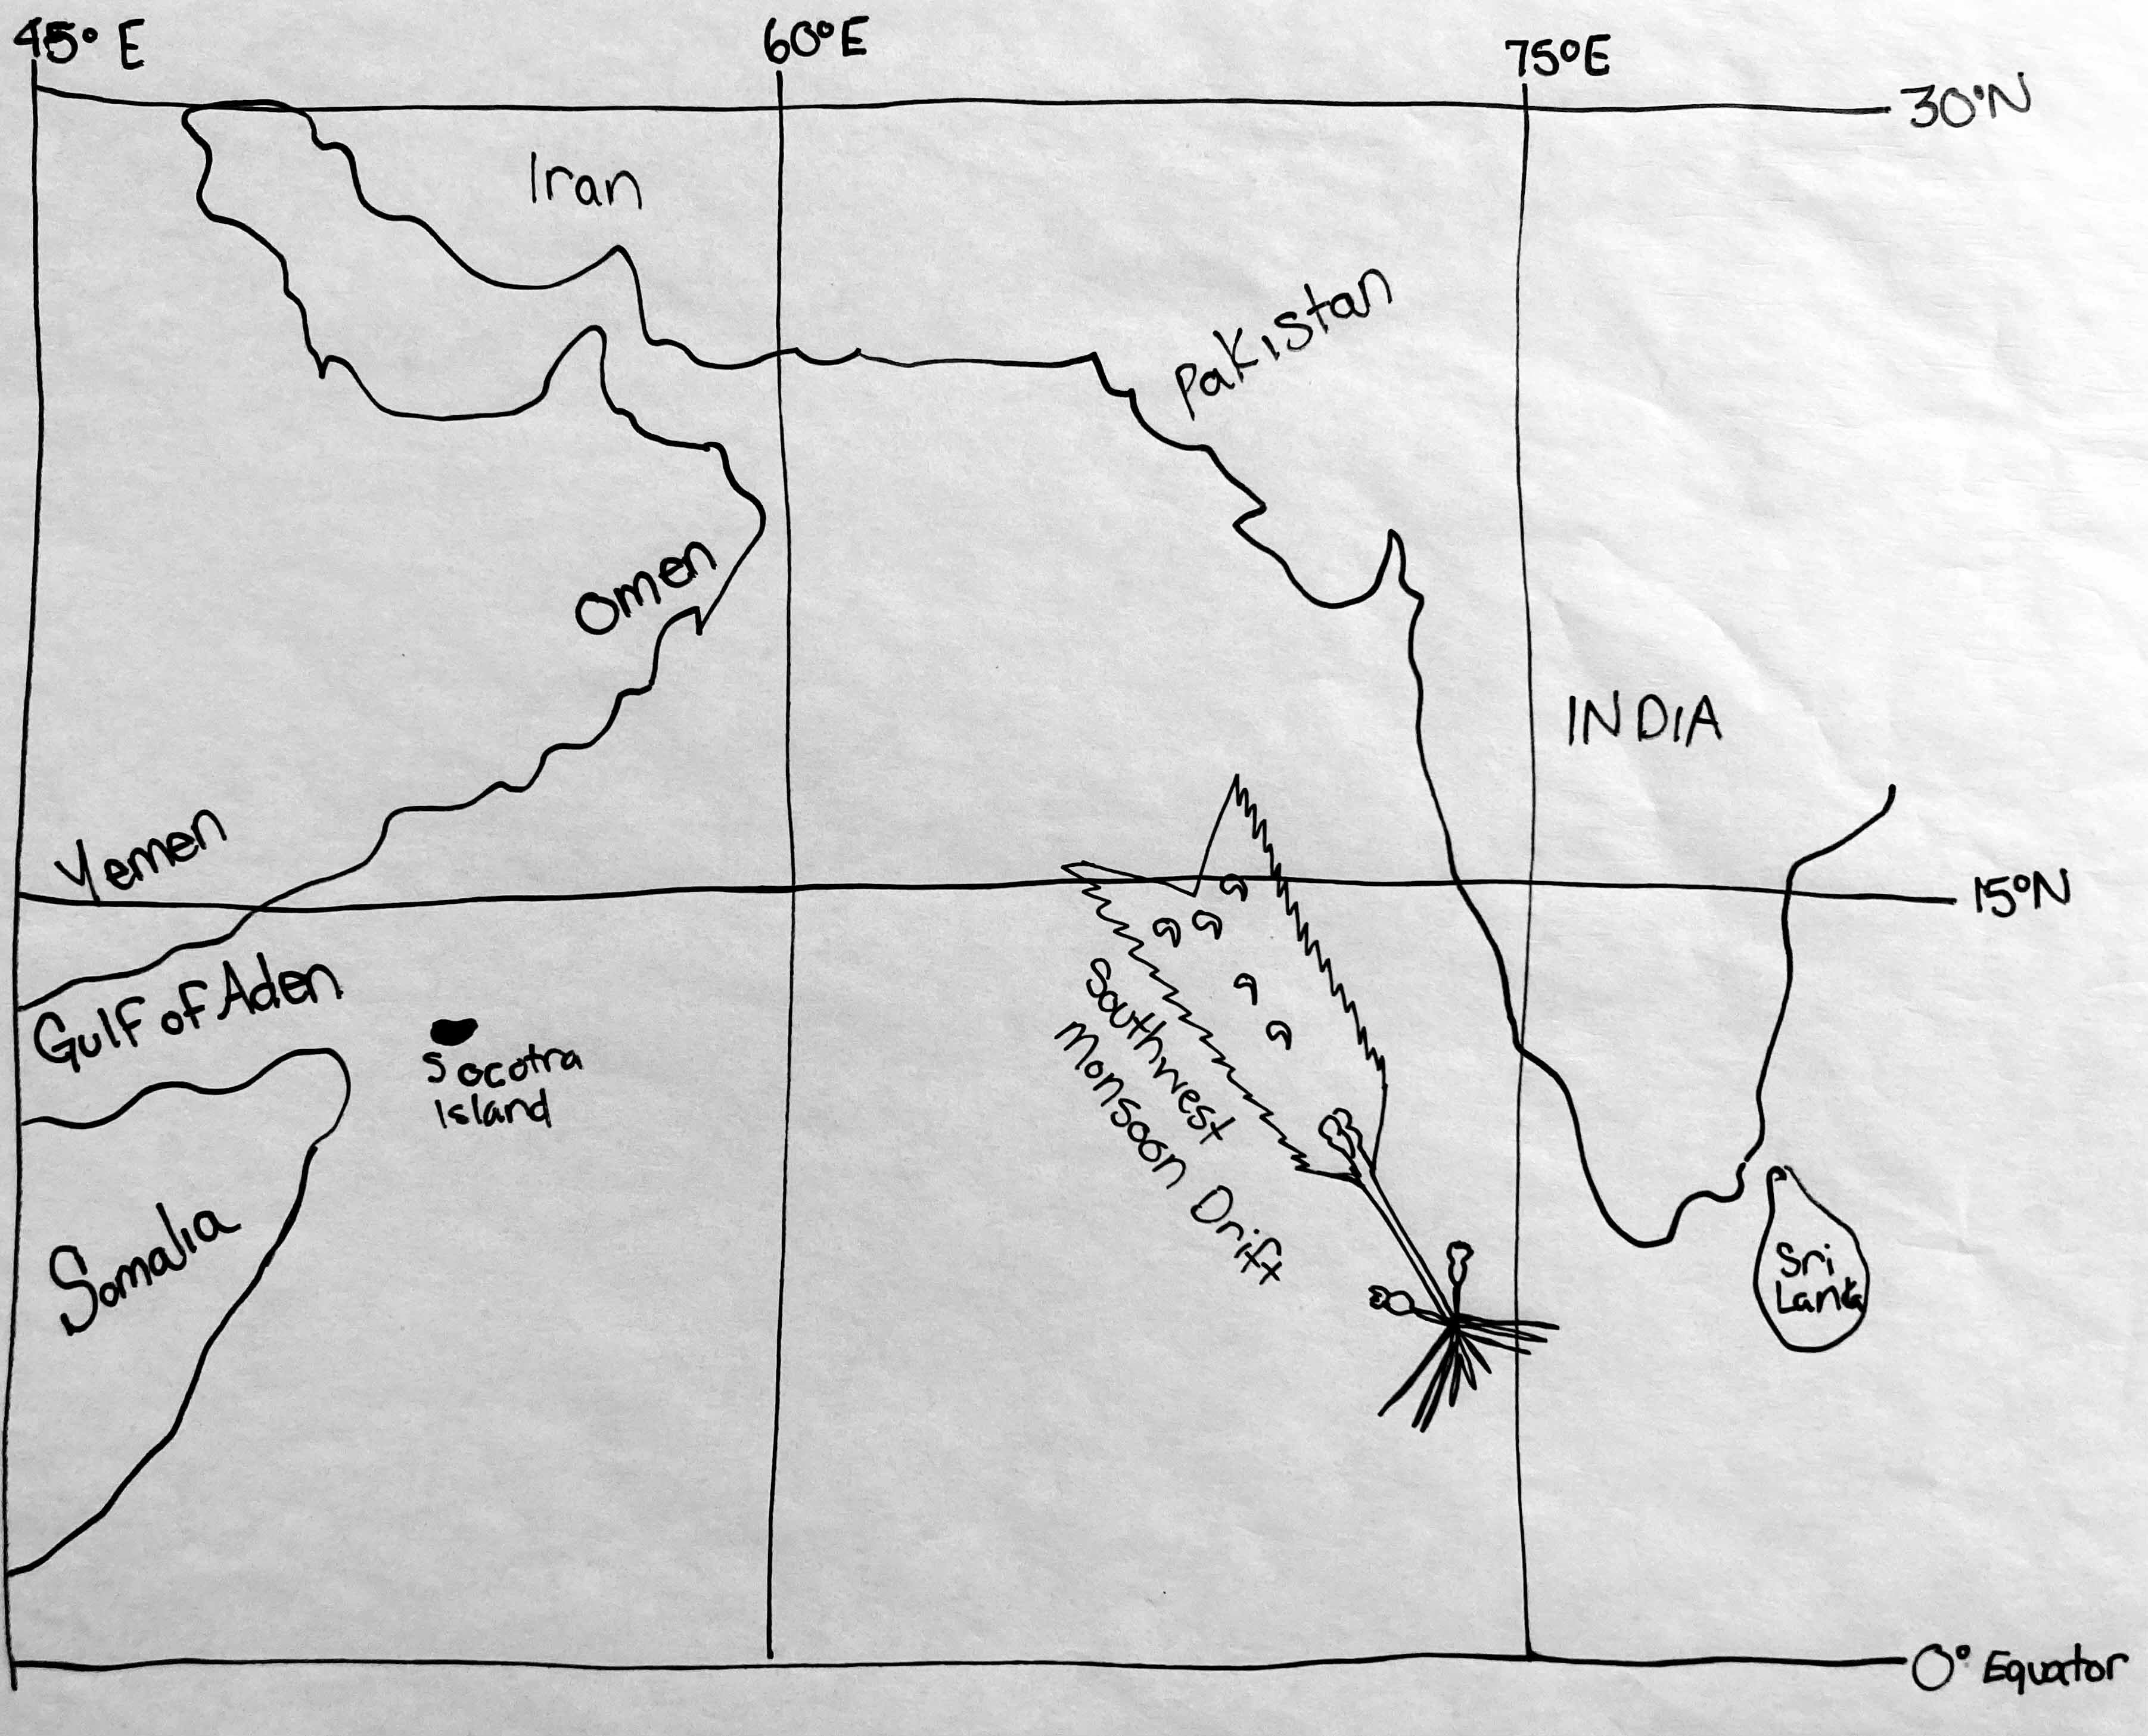 45° E
60°E
75°E
30°N
Iran
Pakistan
Omen
INDIA
Yemen
15°N
Gulf of Aden
Socotra
Island
Southwest
Monsoon Drift
Somalia
Sri
Lanka
0° Equator